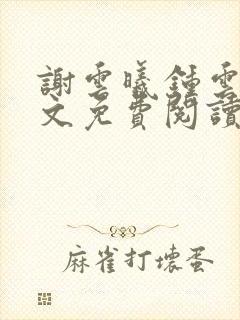 謝雲曦鍾雲
文免費閱讀
麻雀打壞蛋